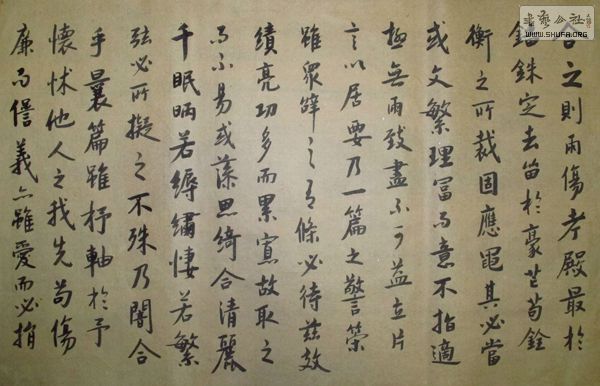 书艺公社
WWW.SHUFA.ORG
合之則兩傷考殿最於
錙銖定去留於豪芒苟銓
衡之所裁固應繩其必當
或文繁理富而意不指適
極無兩致盡不可益立片
言以居要乃一篇之警策
雖眾辭之有條必待茲效
績亮功多而累寡故取之
而不易或藻思綺合清麗
千眠昞若縟繡悽若繁
弦必所擬之不殊乃闇合
乎曩篇雖杼軸於予
懷怵他人之我先苟傷
廉而義亦雖愛而必捐